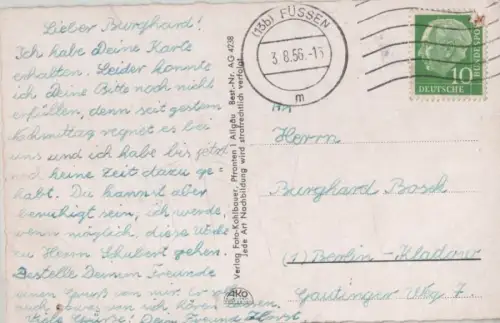 Lieber Burghard!
Ich habe Deine Karte
erhalten. Leider konnte
ich Deine Bitte noch nicht
erfüllen, denn seit gestern
Nachmittag regnet es bei
uns und ich habe bis jetzt
noch keine Zeit dazu ge-
habt. Du kannst aber
beruhigt sein, ich werde,
wenn möglich, diese Woche
zu Herrn Schubert gehen.
Bestelle Deinem Freunde
einen Gruß von mir. Er
noch von mir hören
Viele Grüße! Dein Freund Horst
Verlag Foto-Kohlbauer, Pfronten i Allgäu Best.-Nr. AG 4238
Jede Art Nachbildung wird strafrechtlich verfolgt
AKO
(13b) FÜSSEN
3.8.56.-13
m
10
DEUTSCHE
BUNDESPOST
An
Herrn
Burghard Bosch
(1) Berlin-Kladow
Gautinger Weg 7.